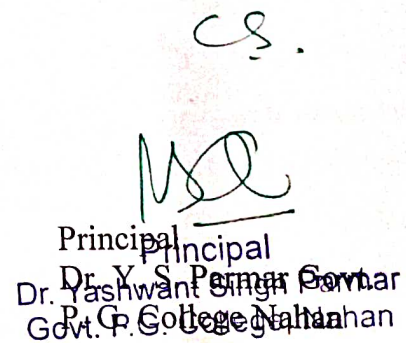 CS.
Principal
Dr. Y. S. Parmar Govt.
P. G. College Nahan
Principal
Dr. Yashwant Singh Parmar
Govt. P.G. College Nahan